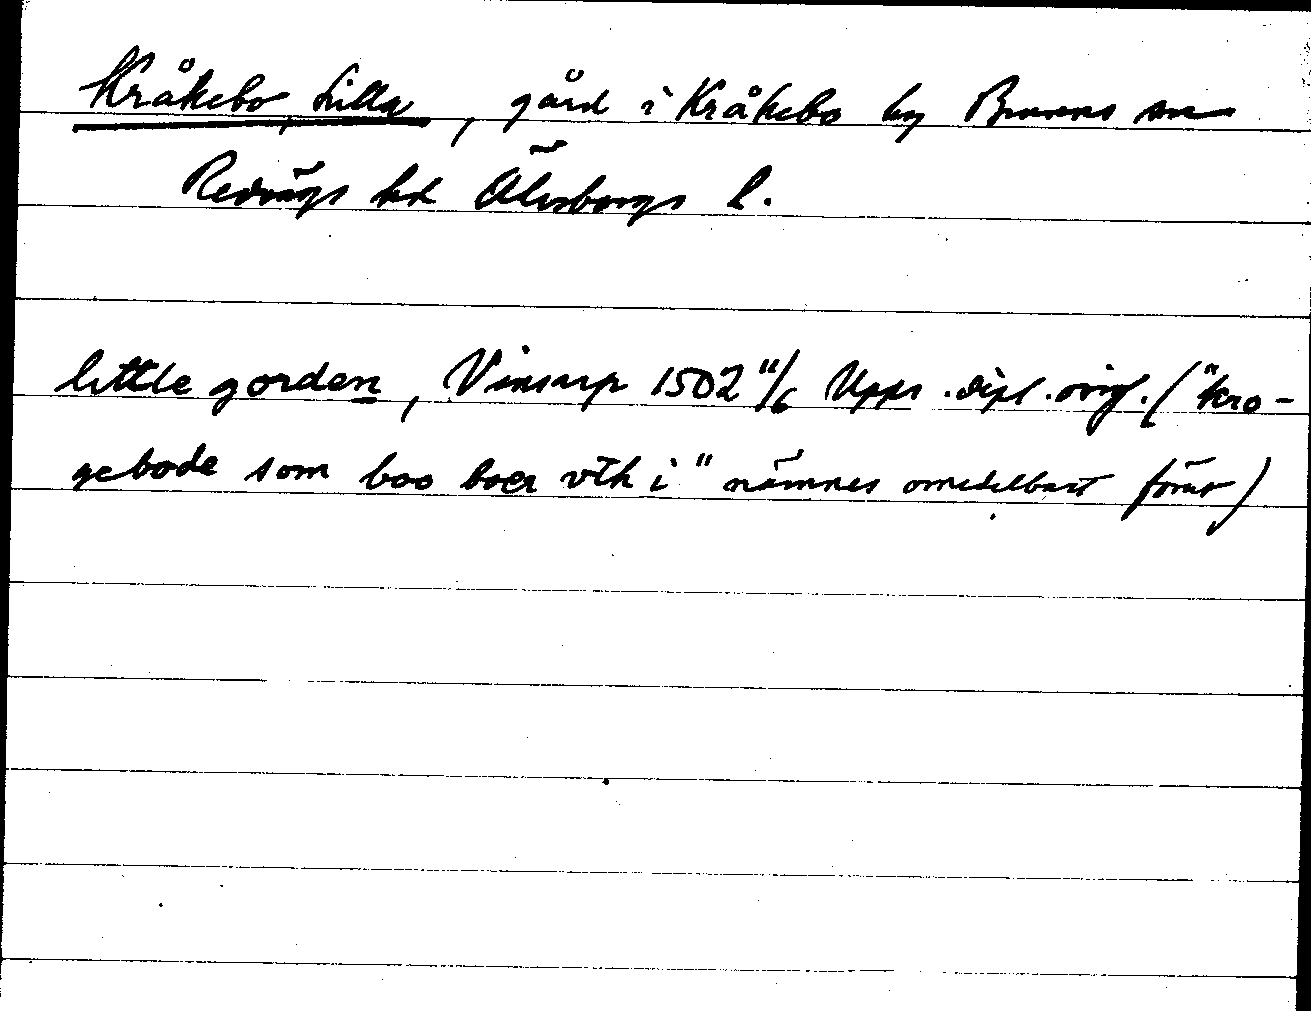 Kråkebo, Lilla, gård i Kråkebo by Brunns sn
Redvägs hd Älvsborgs l.
little gorden, Vinsarp 1502 11/6 Upps. dipl. orig. ("kro-
gebode som boo boer vth i" nämnes omedelbart förut)